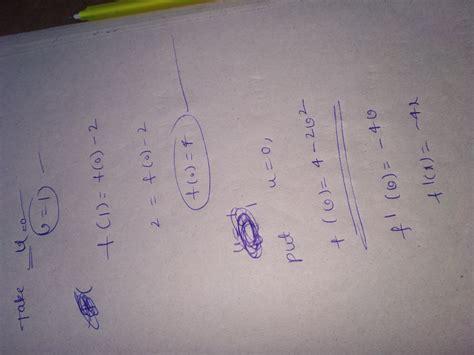 Take u=0
v=1
f(1) = f(0) - 2
2 = f(0) - 2
f(0) = 4
put u=0,
f(v) = 4 - 2v²
f'(v) = -4v
f'(x) = -4x